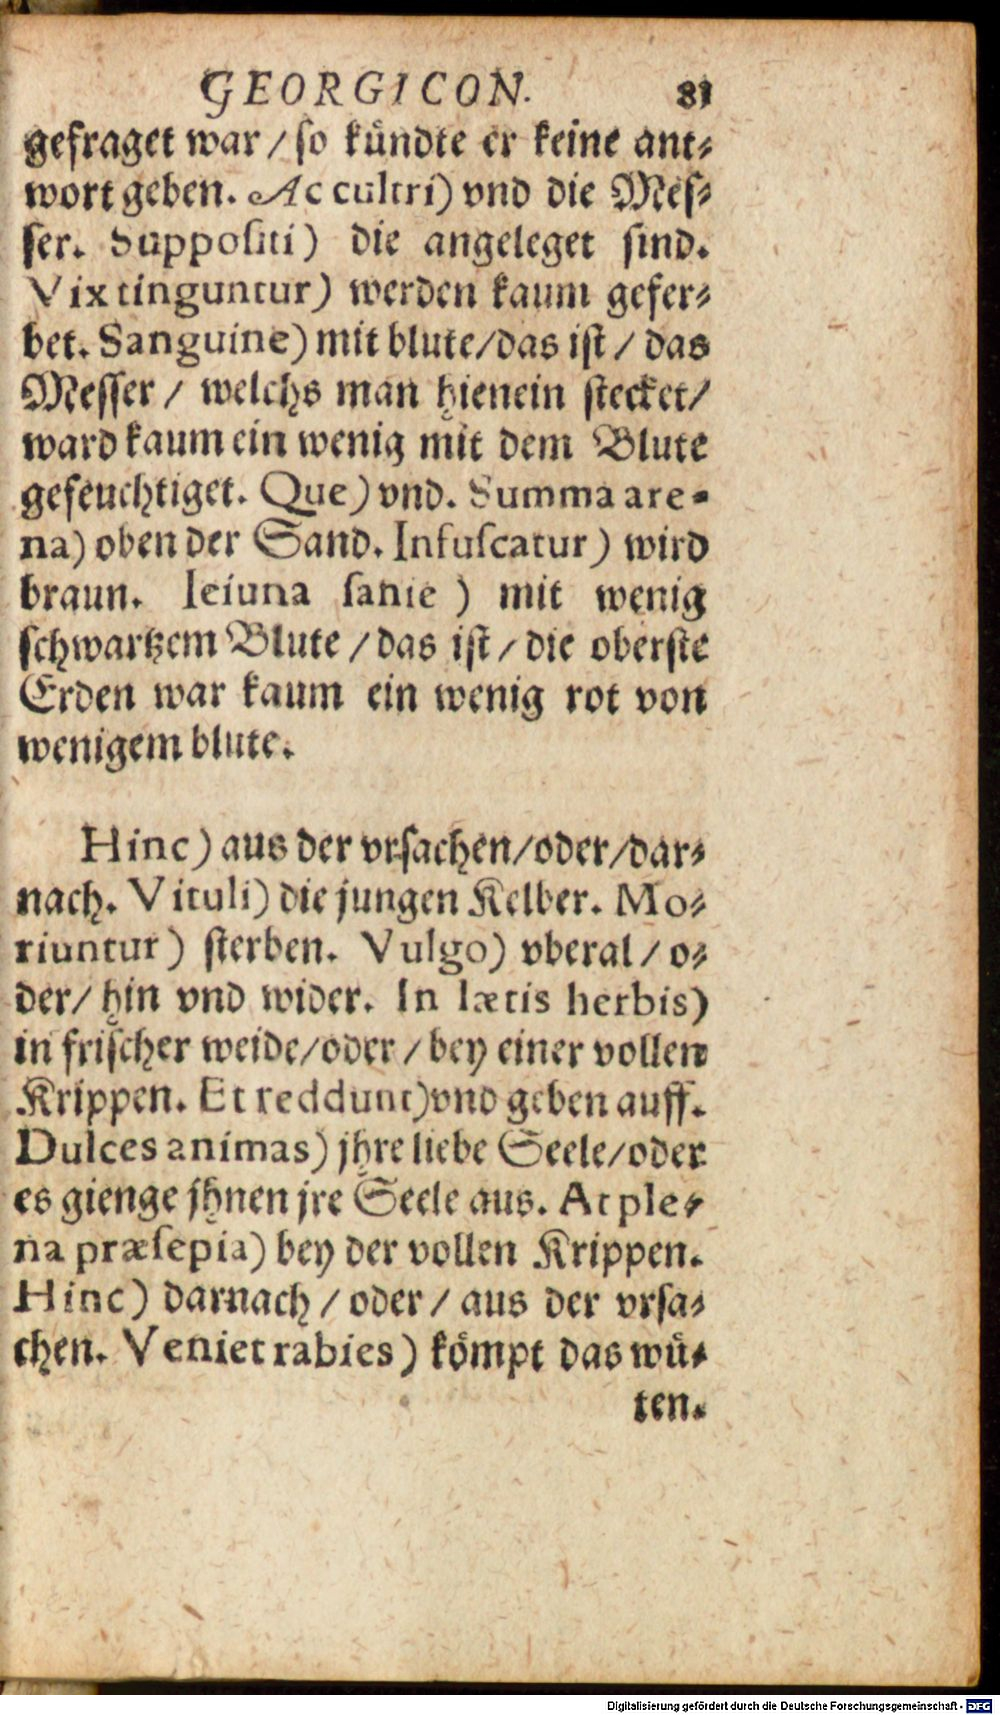 GEORGICON. 81
gefraget war / so kuͤndte er keine ant⸗
wort geben. Ac cultri) vnd die Mes⸗
ser. Suppositi) die angeleget sind.
Vix tinguntur) werden kaum gefer⸗
bet. Sanguine) mit blute/das ist / das
Messer / welchs man hienein stecket/
ward kaum ein wenig mit dem Blute
gefeuchtiget. Que) vnd. Summa are-
na) oben der Sand. Infuscatur) wird
braun. Ieiuna sanie ) mit wenig
schwartzem Blute / das ist / die oberste
Erden war kaum ein wenig rot von
wenigem blute.
Hinc) aus der vrsachen/oder/dar⸗
nach. Vituli) die jungen Kelber. Mo⸗
riuntur) sterben. Vulgo) vberal / o⸗
der/ hin vnd wider. In lætis herbis)
in frischer weide/oder / bey einer vollen
Krippen. Et reddunt)vnd geben auff.
Dulces animas) jhre liebe Seele/oder
es gienge jhnen jre Seele aus. At ple⸗
na præsepia) bey der vollen Krippen.
Hinc) darnach / oder / aus der vrsa⸗
chen. Veniet rabies) koͤmpt das wuͤ⸗
ten.
Digitalisierung gefördert durch die Deutsche Forschungsgemeinschaft - DFG